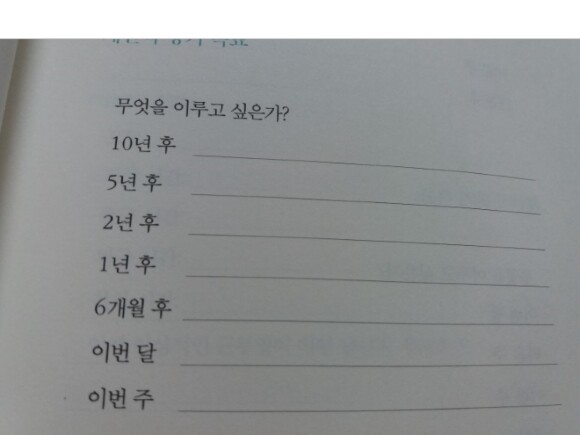 무엇을 이루고 싶은가?
10년 후
5년 후
2년 후
1년 후
6개월 후
이번 달
이번 주